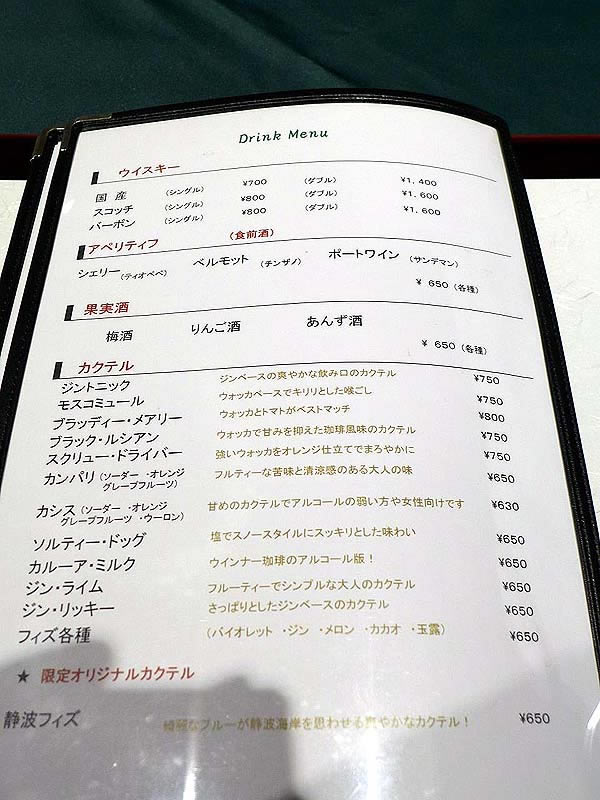 Drink Menu
ウイスキー
国産 (シングル) ¥700 (ダブル) ¥1,400
スコッチ (シングル) ¥800 (ダブル) ¥1,600
バーボン (シングル) ¥800 (ダブル) ¥1,600
アペリティフ (食前酒)
シェリー(ティオペペ) ベルモット (チンザノ) ポートワイン (サンデマン)
¥ 650 (各種)
果実酒
梅酒 りんご酒 あんず酒
¥ 650 (各種)
カクテル
ジントニック ジンベースの爽やかな飲み口のカクテル ¥750
モスコミュール ウォッカベースでキリリとした喉ごし ¥750
ブラッディー・メアリー ウォッカとトマトがベストマッチ ¥800
ブラック・ルシアン ウォッカで甘みを抑えた珈琲風味のカクテル ¥750
スクリュー・ドライバー 強いウォッカをオレンジ仕立てでまろやかに ¥750
カンパリ (ソーダー ・オレンジ フルティーな苦味と清涼感のある大人の味 ¥650
グレープフルーツ)
カシス (ソーダー ・オレンジ 甘めのカクテルでアルコールの弱い方や女性向けです ¥630
グレープフルーツ ・ウーロン)
ソルティー・ドッグ 塩でスノースタイルにスッキリとした味わい ¥650
カルーア・ミルク ウインナー珈琲のアルコール版! ¥650
ジン・ライム フルーティーでシンプルな大人のカクテル ¥650
ジン・リッキー さっぱりとしたジンベースのカクテル ¥650
フィズ各種 (バイオレット ・ジン ・メロン ・カカオ ・玉露) ¥650
★ 限定オリジナルカクテル
静波フィズ 綺麗なブルーが静波海岸を思わせる爽やかなカクテル! ¥650